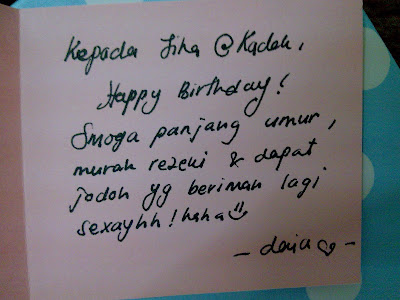 Kepada Jiha @ Kadok,
Happy Birthday!
Smoga panjang umur,
murah rezeki & dapat
jodoh yg beriman lagi
sexayhh! haha